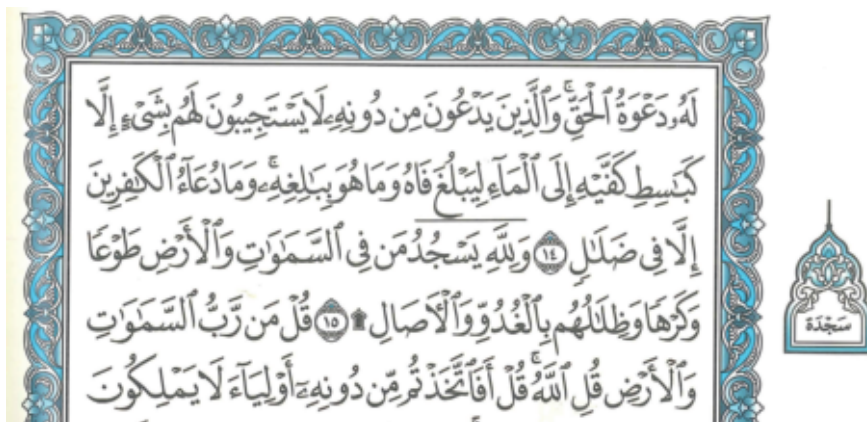 لَهُۥ دَعْوَةُ ٱلْحَقِّ ۚ وَٱلَّذِينَ يَدْعُونَ مِن دُونِهِۦ لَا يَسْتَجِيبُونَ لَهُم بِشَىْءٍ إِلَّا
كَبَٰسِطِ كَفَّيْهِ إِلَى ٱلْمَآءِ لِيَبْلُغَ فَاهُ وَمَا هُوَ بِبَٰلِغِهِۦ ۚ وَمَا دُعَآءُ ٱلْكَٰفِرِينَ
إِلَّا فِى ضَلَٰلٍ ١٤ وَلِلَّهِ يَسْجُدُ مَن فِى ٱلسَّمَٰوَٰتِ وَٱلْأَرْضِ طَوْعًا
وَكَرْهًا وَظِلَٰلُهُم بِٱلْغُدُوِّ وَٱلْءَاصَالِ ۩ ١٥ قُلْ مَن رَّبُّ ٱلسَّمَٰوَٰتِ
سَجْدَة
وَٱلْأَرْضِ قُلِ ٱللَّهُ ۚ قُلْ أَفَٱتَّخَذْتُم مِّن دُونِهِۦٓ أَوْلِيَآءَ لَا يَمْلِكُونَ